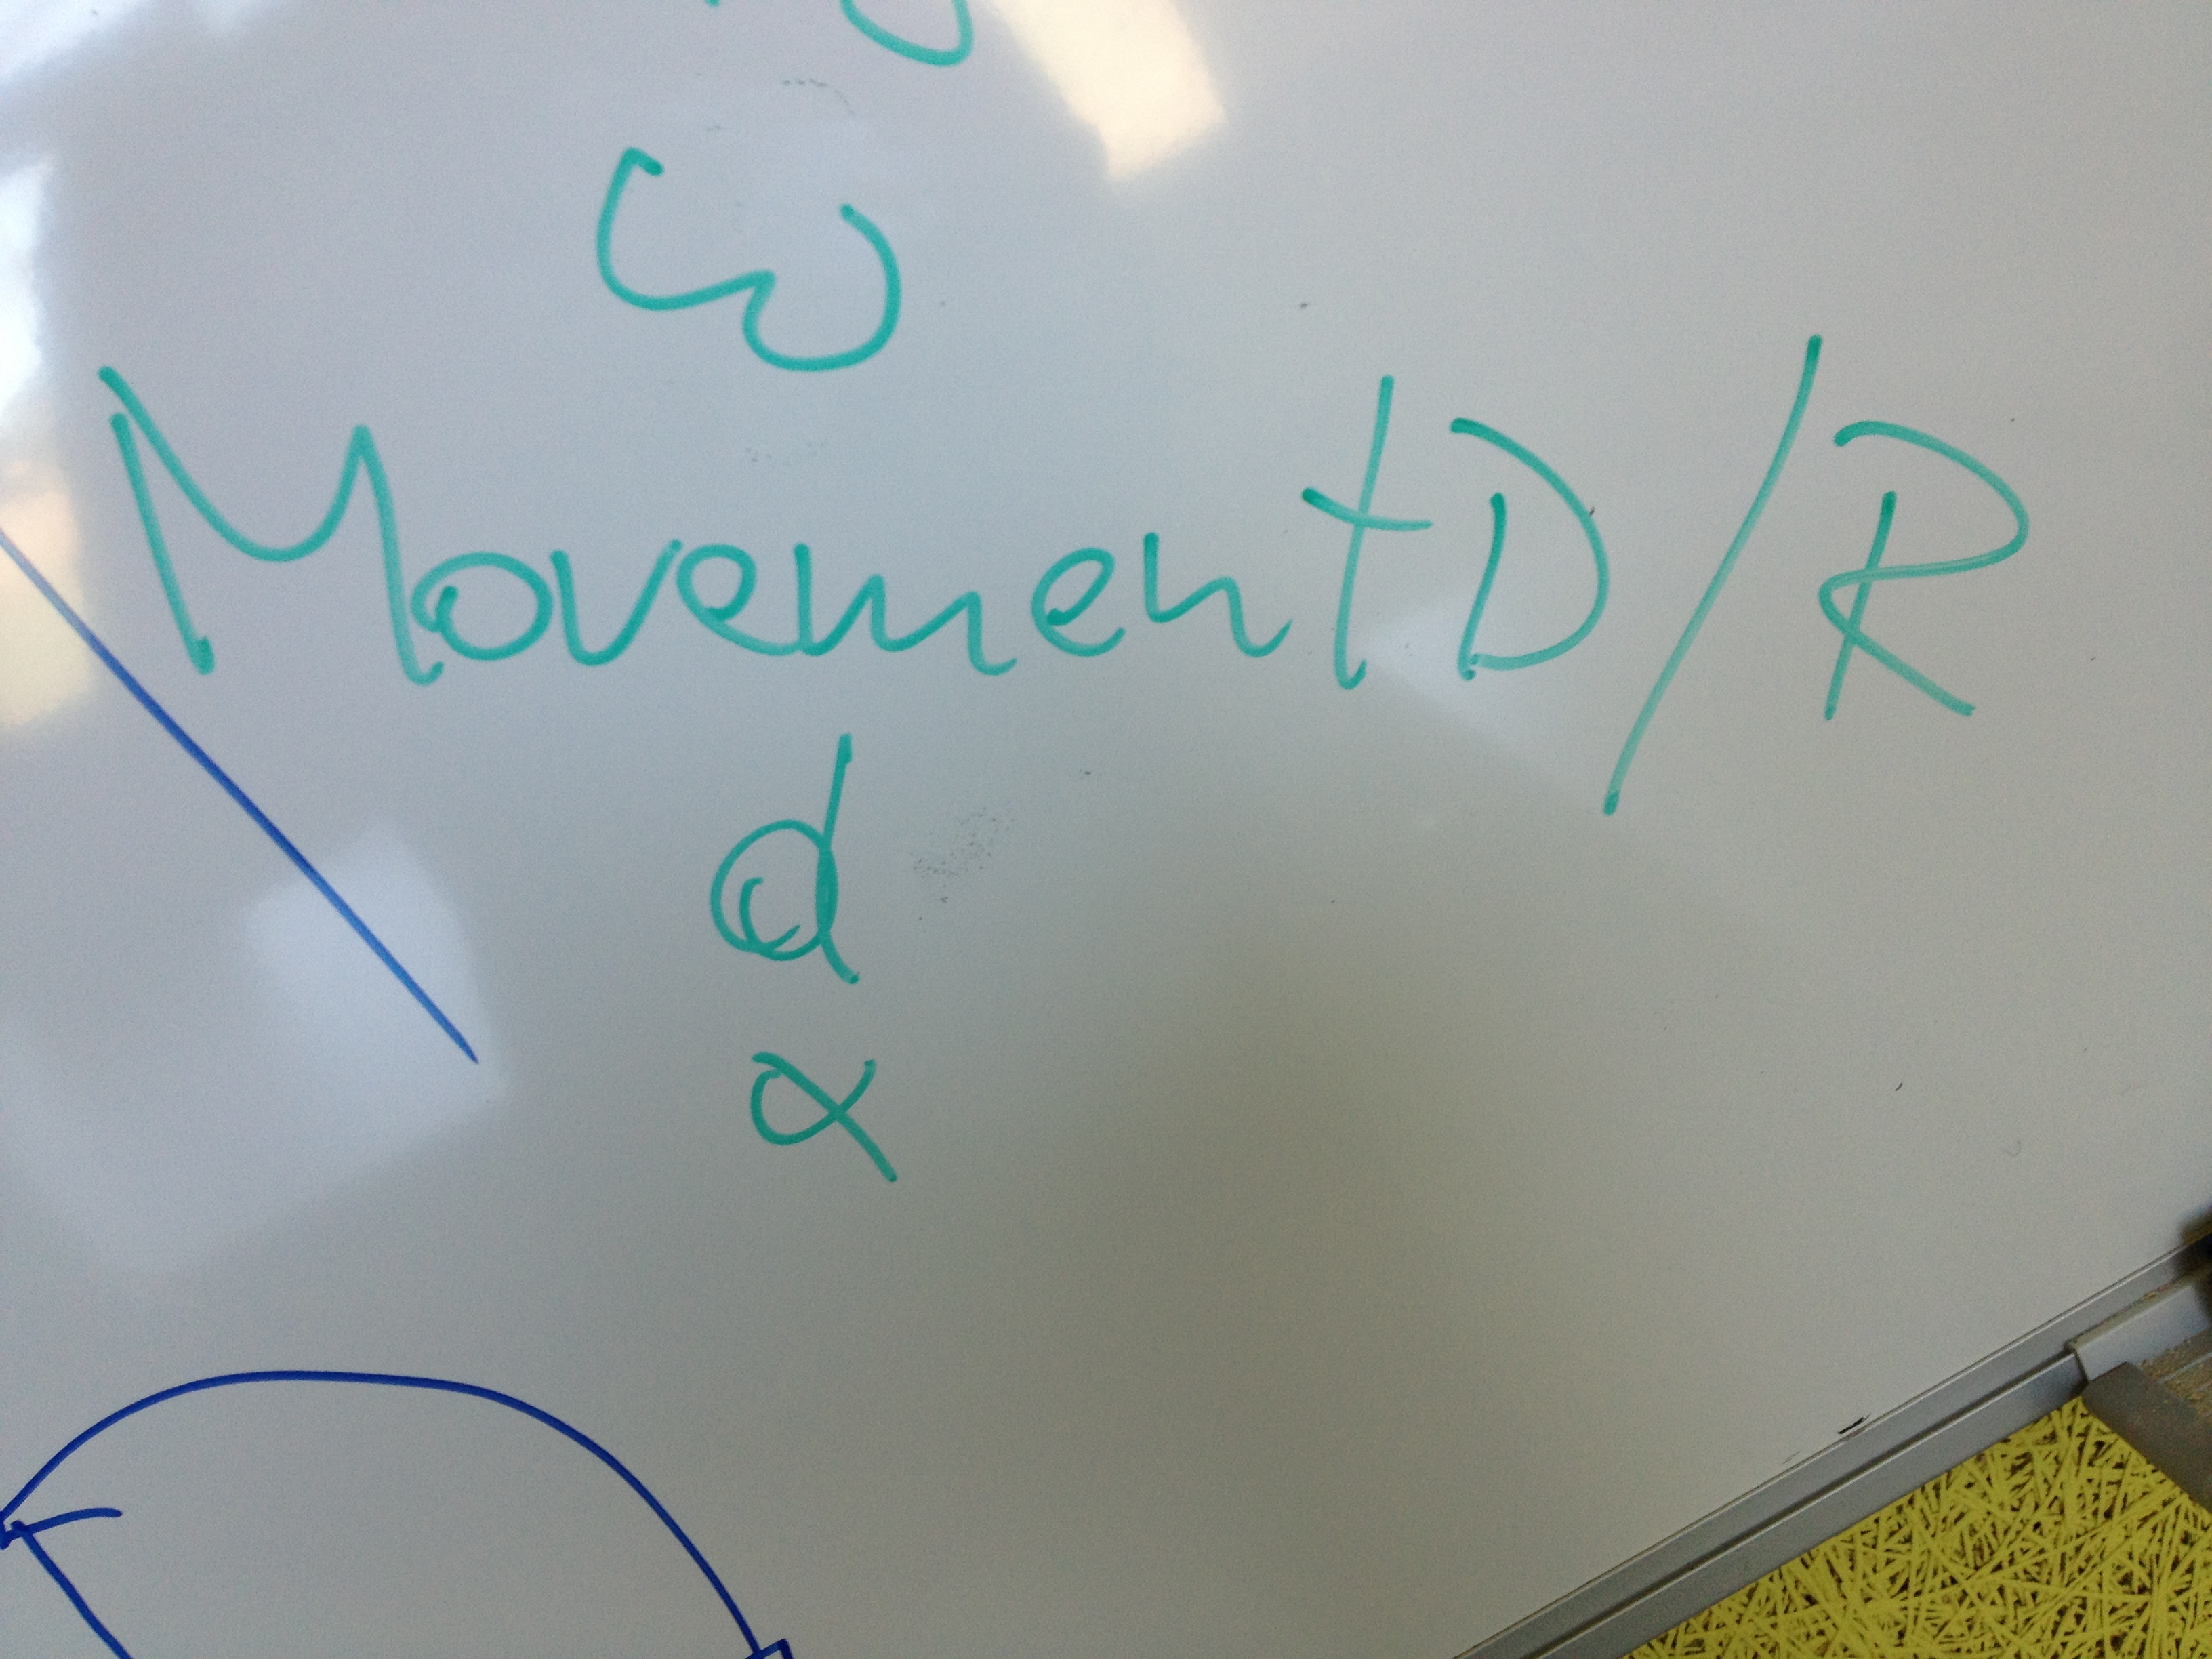 ω
MovementD/R
d
α